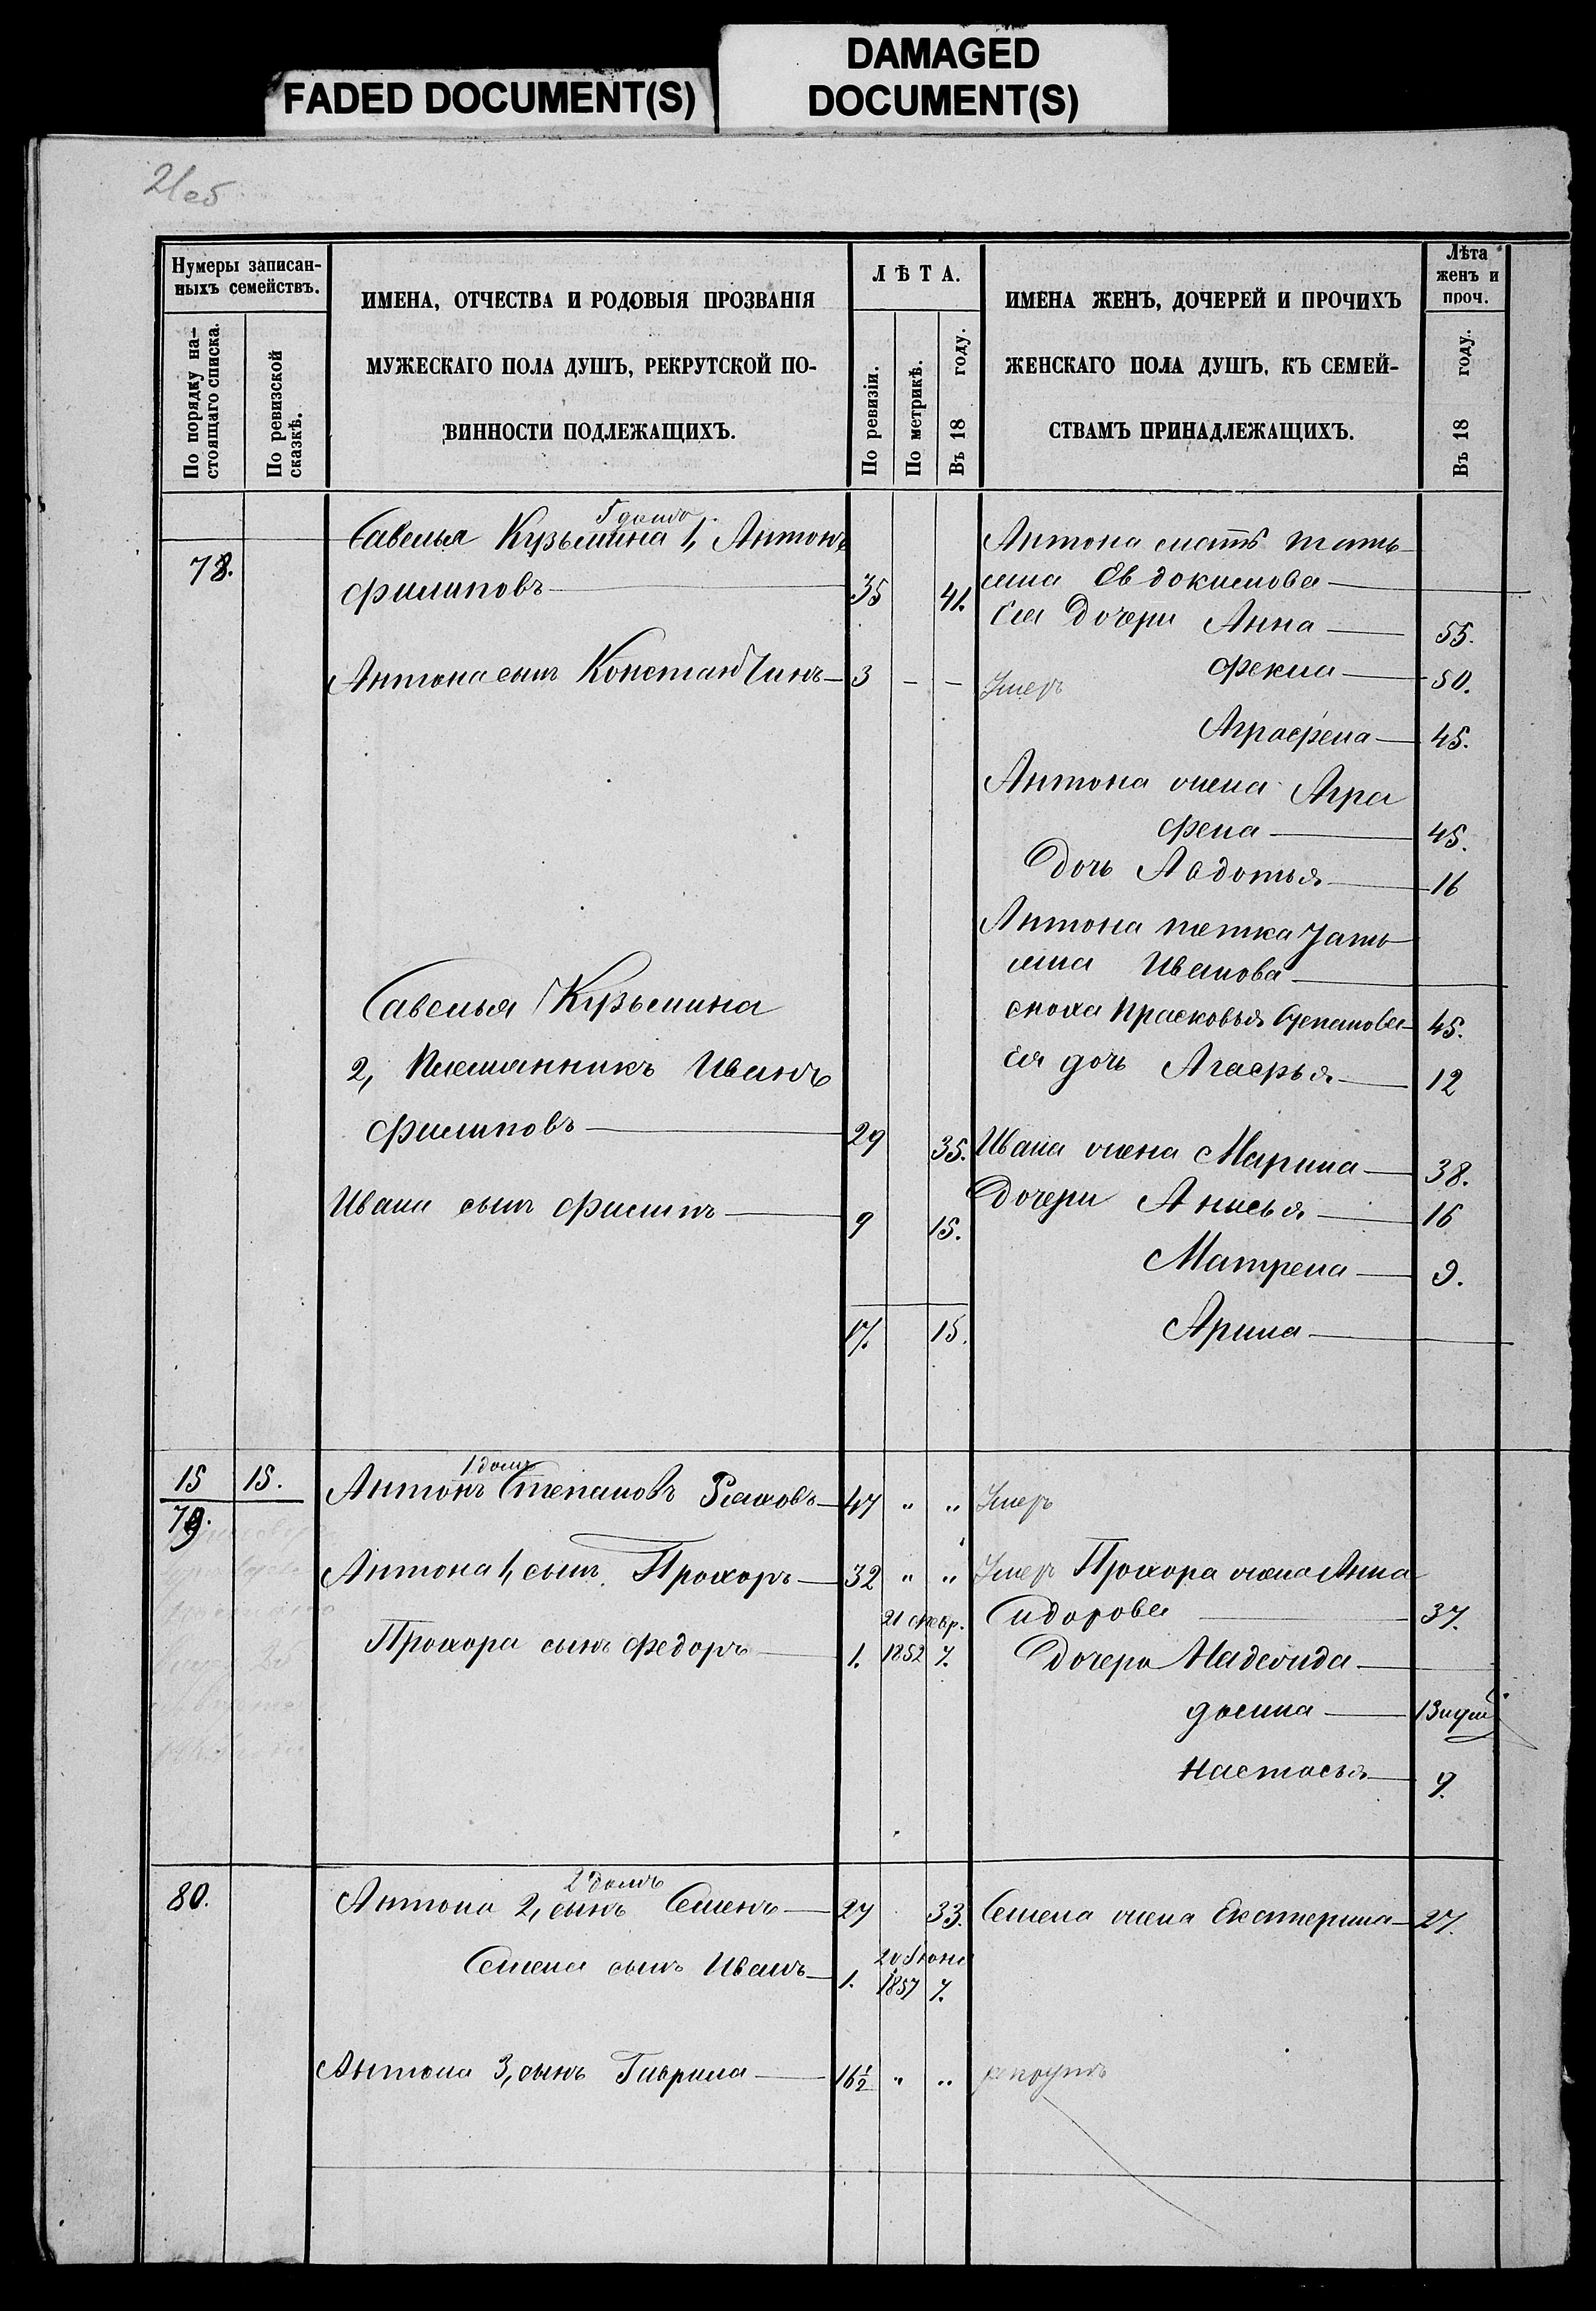 FADED DOCUMENT(S)
DAMAGED
DOCUMENT(S)
21об
Нумеры записан-
ныхъ семействъ.
По порядку на-
стоящаго списка.
По ревизской
сказкѣ.
ИМЕНА, ОТЧЕСТВА И РОДОВЫЯ ПРОЗВАНІЯ
МУЖЕСКАГО ПОЛА ДУШЪ, РЕКРУТСКОЙ ПО-
ВИННОСТИ ПОДЛЕЖАЩИХЪ.
ЛѢТА.
По ревизіи.
По метрикѣ.
Въ 18 году.
ИМЕНА ЖЕНЪ, ДОЧЕРЕЙ И ПРОЧИХЪ
ЖЕНСКАГО ПОЛА ДУШЪ, КЪ СЕМЕЙ-
СТВАМЪ ПРИНАДЛЕЖАЩИХЪ.
Лѣта
женъ и
проч.
Въ 18 году.
78.
5 домъ
Савелья Кузьмина 1, Антонъ
Филиповъ 35 41.
Антона сынъ Константинъ 3 - - Умеръ
Антона мать Тать-
яна Евдокимова
Ея дочери Анна 55.
Фекла 50.
Аграфена 45.
Антона жена Агра
фена 45.
Дочь Авдотья 16
Антона тетка Тать-
яна Иванова
сноха Прасковья Степанова 45.
Ея дочь Агафья 12
Савелья Кузьмина
2, Племянникъ Иванъ
Филиповъ 29 35.
Ивана сынъ Филипъ 9 15.
17. 15.
Ивана жена Марина 38.
Дочери Анисья 16
Матрена 9.
Арина
15 15.
79.
1 домъ
Антонъ Степановъ 47 " " Умеръ
Антона 1, сынъ Прохоръ 32 " " Умеръ Прохора жена Анна
Сидорова 37.
21
Прохора сынъ Федоръ 1. 1852 7.
Дочери
13
Настасья 9.
80.
2 домъ
Антона 2, сынъ Семенъ 27 33. Семена жена Екатерина 27.
20 Июня
Семена сынъ Иванъ 1. 1857 7.
Антона 3, сынъ Гаврила 16½ " " рекрутъ